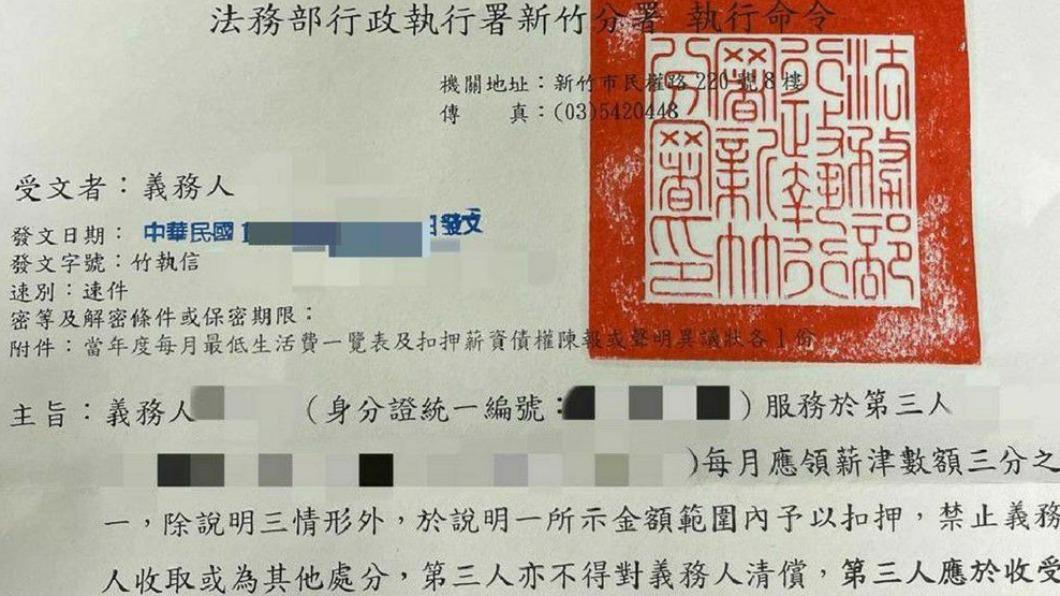 法務部行政執行署新竹分署 執行命令
機關地址：新竹市民權路220號8樓
傳　　真：(03)5420448
法務部行政執行署新竹分署印
受文者：義務人
發文日期：中華民國 日發文
發文字號：竹執信
速別：速件
密等及解密條件或保密期限：
附件：當年度每月最低生活費一覽表及扣押薪資債權陳報或聲明異議狀各1份
主旨：義務人 （身分證統一編號： ）服務於第三人
)每月應領薪津數額三分之
一，除說明三情形外，於說明一所示金額範圍內予以扣押，禁止義務
人收取或為其他處分，第三人亦不得對義務人清償，第三人應於收受